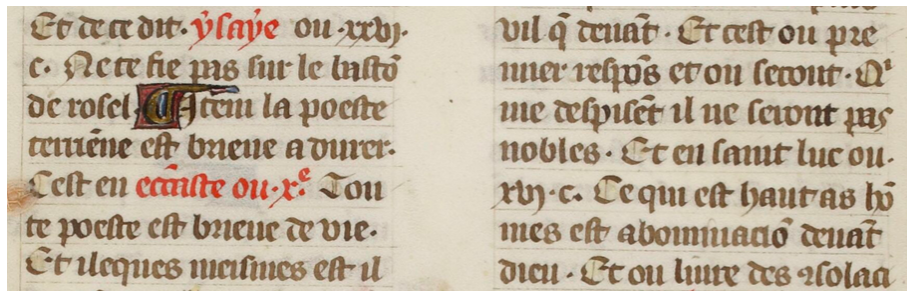 Et de ce dit · ysaÿe ou · xxvj ·
c · Ne te fie pas sur le bastõ
de rosel Item la poeste
terriẽne est brieue a durer ·
Cest en ecc̃aste ou · x.e Tou
te poeste est brieue de vie ·
Et ileques meismes est il
vil q̃ deuãt · Et cest ou pre
mier respõs et ou secont · Qi
me despisẽt il ne seront pas
nobles · Et en saint luc ou ·
xvj · c · Ce qui est haut as hõ
mes est abominaciõ deuãt
dieu · Et ou liure des ꝯsolaci